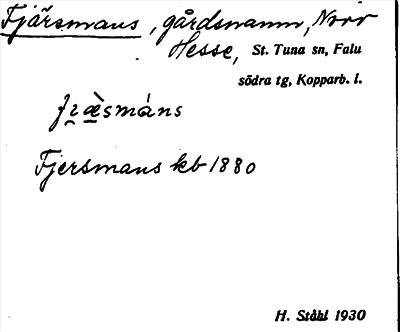 Fjärsmans, gårdsnamn, Norr
Hesse, St. Tuna sn, Falu
södra tg, Kopparb. l.
fiæ̀smáns
Fjersmans kb 1880
H. Ståhl 1930